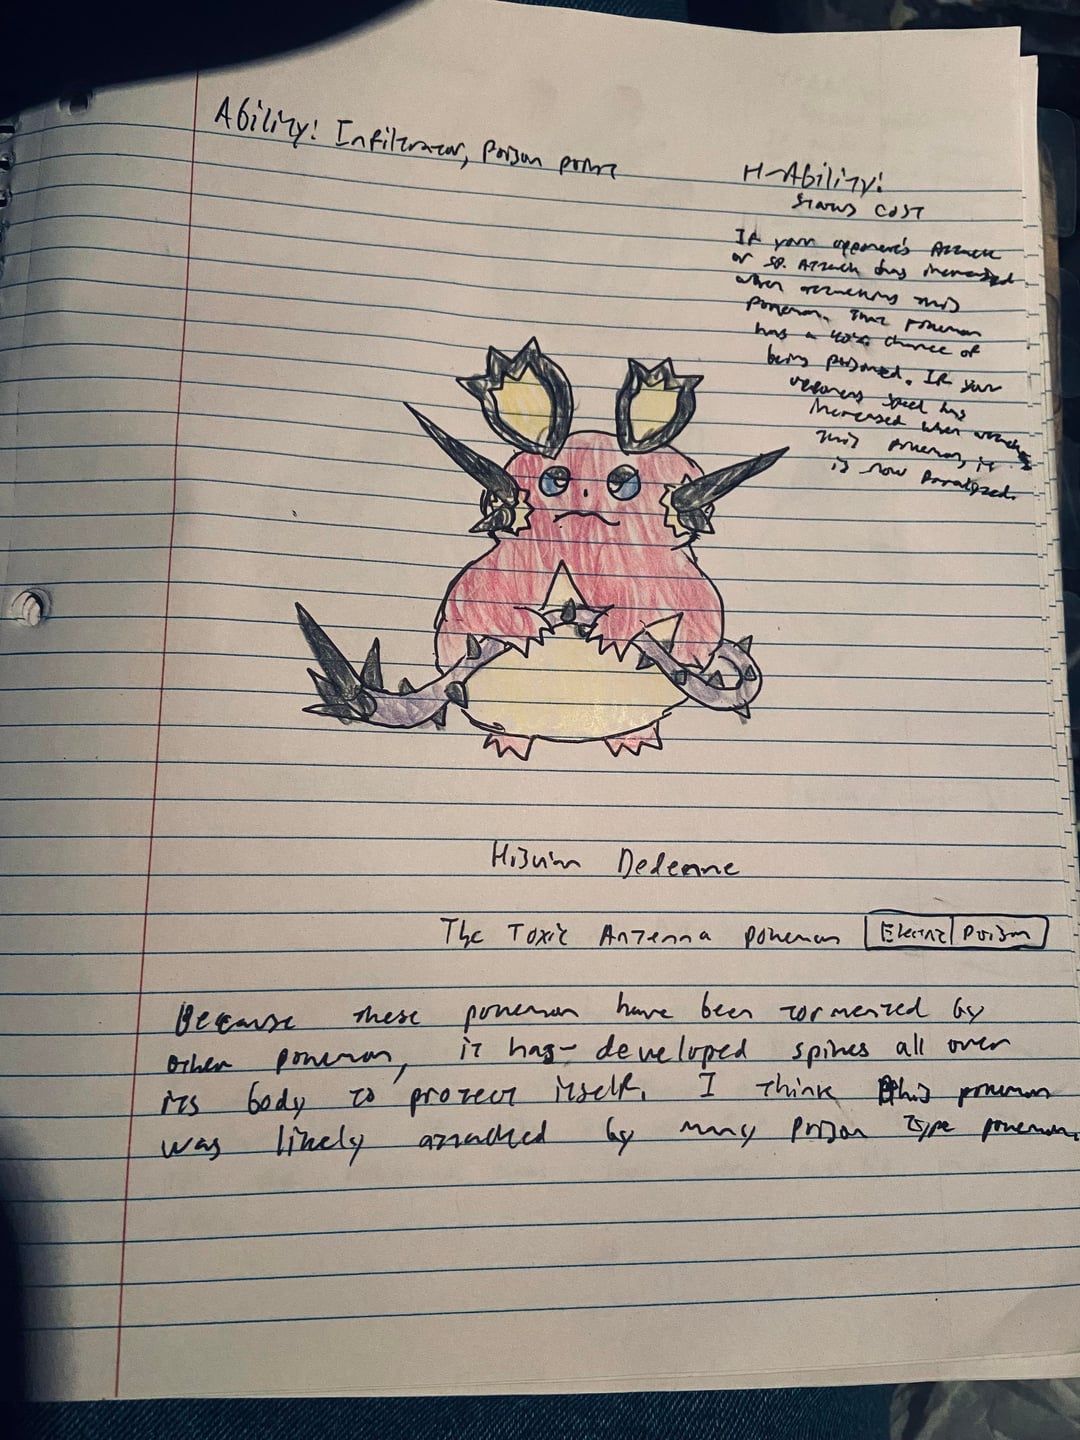 Ability: Infiltrator, Poison point
H-Ability:
Status Cost
If your opponent's Attack
or sp. Attack has increased
when attacking this
pokemon, that pokemon
has a 40% chance of
being poisoned. If your
opponents speed has
increased when attacking
this pokemon, it
is now Paralyzed.
Hisuian Dedenne
The Toxic Antenna pokemon Electric Poison
Because these pokemon have been tormented by
other pokemon, it has developed spines all over
its body to protect itself. I think this pokemon
was likely attacked by many Poison Type pokemon.